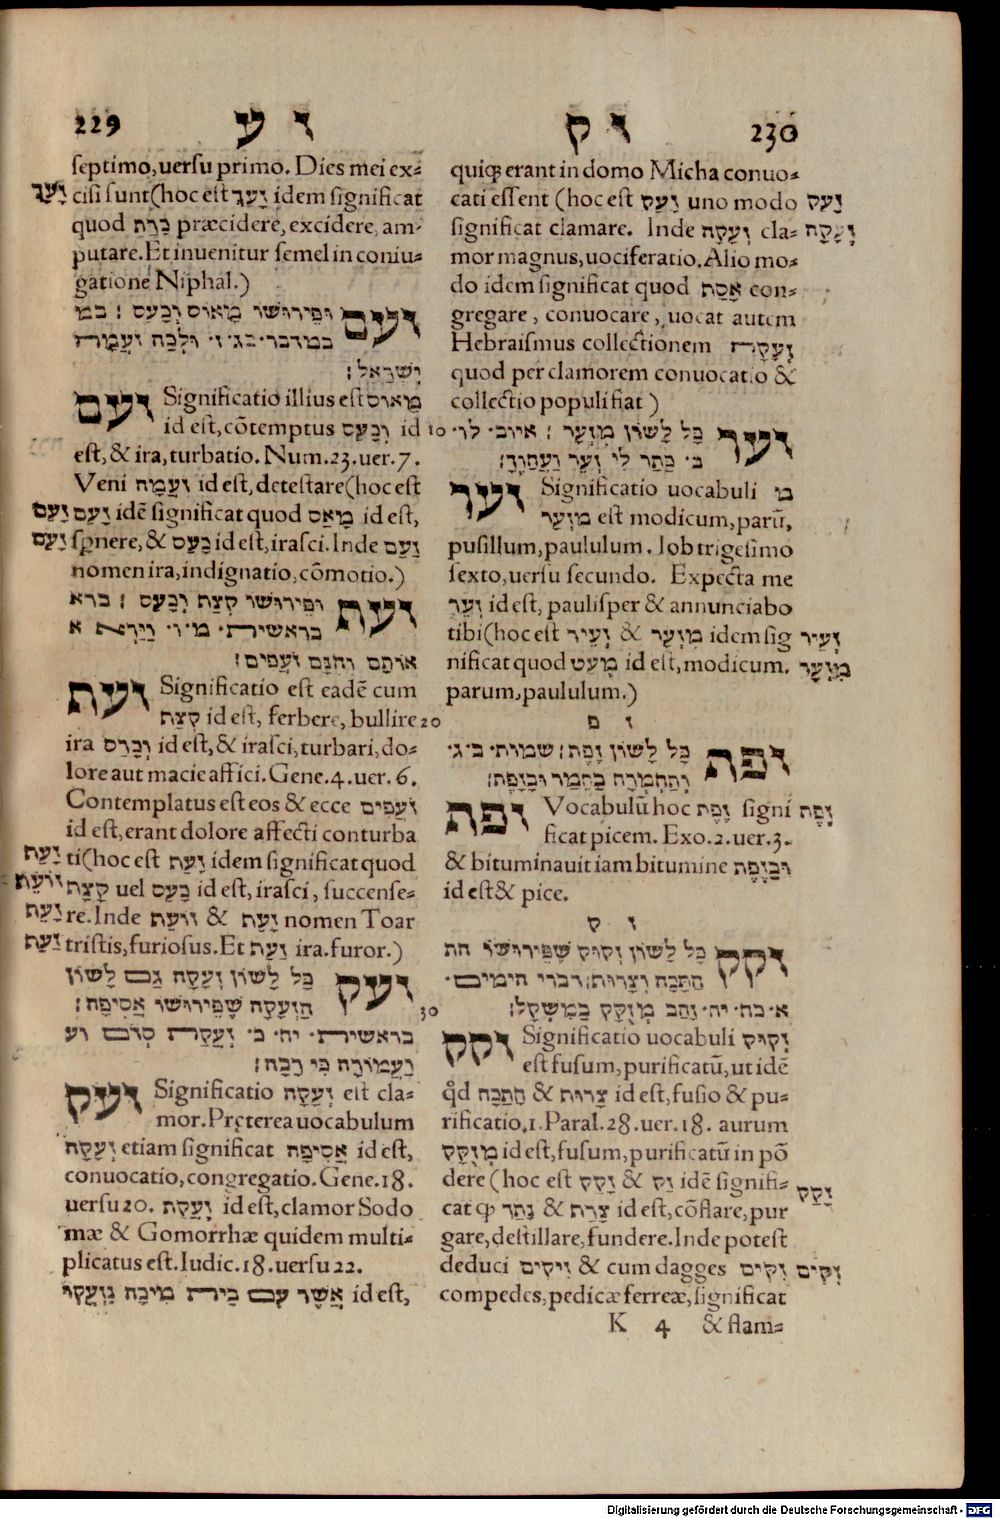 229 זע
septimo, uersu primo. Dies mei ex=
זָעַךְ cisi sunt(hoc est זָעַךְ idem significat
quod כָּרַת præcidere, excidere, am-
putare. Et inuenitur semel in coniu=
gatione Niphal.)
זעם ופירושו מאוס וכעס : במ
במדבר· כג· ז· ולכה זועמה
ישראל :
זעם Significatio illius est מאוס
id est, cõtemptus וכעס id
est, & ira, turbatio. Num. 23. uer. 7.
Veni זעמה id est, detestare(hoc est
זָעַם זעם idẽ significat quod מאס id est,
זַעַם spnere, & כעס id est, irasci. Inde זַעַם
nomen ira, indignatio, cõmotio.)
זעף ופירושו קצת וכעס : ברא
בראשית· מ· ו· וירא א
אותם והנם זועפים :
זעף Significatio est eadẽ cum
קצת id est, ferbere, bullire
ira וכעס id est, & irasci, turbari, do=
lore aut macie affici. Gene. 4. uer. 6.
Contemplatus est eos & ecce זועפים
id est, erant dolore affecti conturba
זעף ti(hoc est זעף idem significat quod
זועף קצת uel כעס id est, irasci, succense=
זעף re. Inde זועף & זעף nomen Toar
זעף tristis, furiosus. Et זעף ira. furor.)
זעק כל לשון זעקה גם לשון
הזעקה שפירושו אסיפה :
בראשית· יח· כ· זעקת סדום וע
ועמורה כי רבה :
זעק Significatio זעקה est cla=
mor. Pręterea uocabulum
זעקה etiam significat אסיפה id est,
conuocatio, congregatio. Gene. 18.
uersu 20. זעקת id est, clamor Sodo
mæ & Gomorrhæ quidem multi=
plicatus est. Iudic. 18. uersu 22.
אשר עם בית מיכה נזעקו id est,
זק 230
quiqȝ erant in domo Micha conuo=
cati essent (hoc est זעק uno modo זעק
significat clamare. Inde זעקה cla= זעקה
mor magnus, uociferatio. Alio mo=
do idem significat quod אסף con=
gregare, conuocare, uocat autem
Hebraismus collectionem זעקה
quod per clamorem conuocatio &
collectio populi fiat )
10 זער כל לשון מזער : איוב· לו·
ב· כתר לי זעיר ואחוך :
זער Significatio uocabuli מ
מזער est modicum, parũ,
pusillum, paululum. Iob trigesimo
sexto, uersu secundo. Expecta me
זעיר id est, paulisper & annunciabo
tibi(hoc est זעיר & מזער idem sig זעיר
nificat quod מעט id est, modicum. מזער
parum, paululum.)
20 זפ
זפת כל לשון זפת : שמות· ב· ג·
ותחמרה בחמר ובזפת :
זפת Vocabulũ hoc זפת signi זפת
ficat picem. Exo. 2. uer. 3.
& bituminauit iam bitumine ובזפת
id est & pice.
זק
זקק כל לשון זקוק שפירושו הת
התכה וצרוף : דברי הימים·
30 א· כח· יח· זהב מזוקק במשקל :
זקק Significatio uocabuli זקוק
est fusum, purificatũ, ut idẽ
qd התכה & צרוף id est, fusio & pu=
rificatio. 1. Paral. 28. uer. 18. aurum
מזוקק id est, fusum, purificatũ in põ
dere (hoc est זקק & זק idẽ signifi= זקק
cat ꝙ נתך & צרף id est, cõflare, pur
gare, destillare, fundere. Inde potest
deduci זיקים & cum dagges זקים זקים
compedes, pedicæ ferreæ, significat
K 4 & flam=
Digitalisierung gefördert durch die Deutsche Forschungsgemeinschaft - DFG